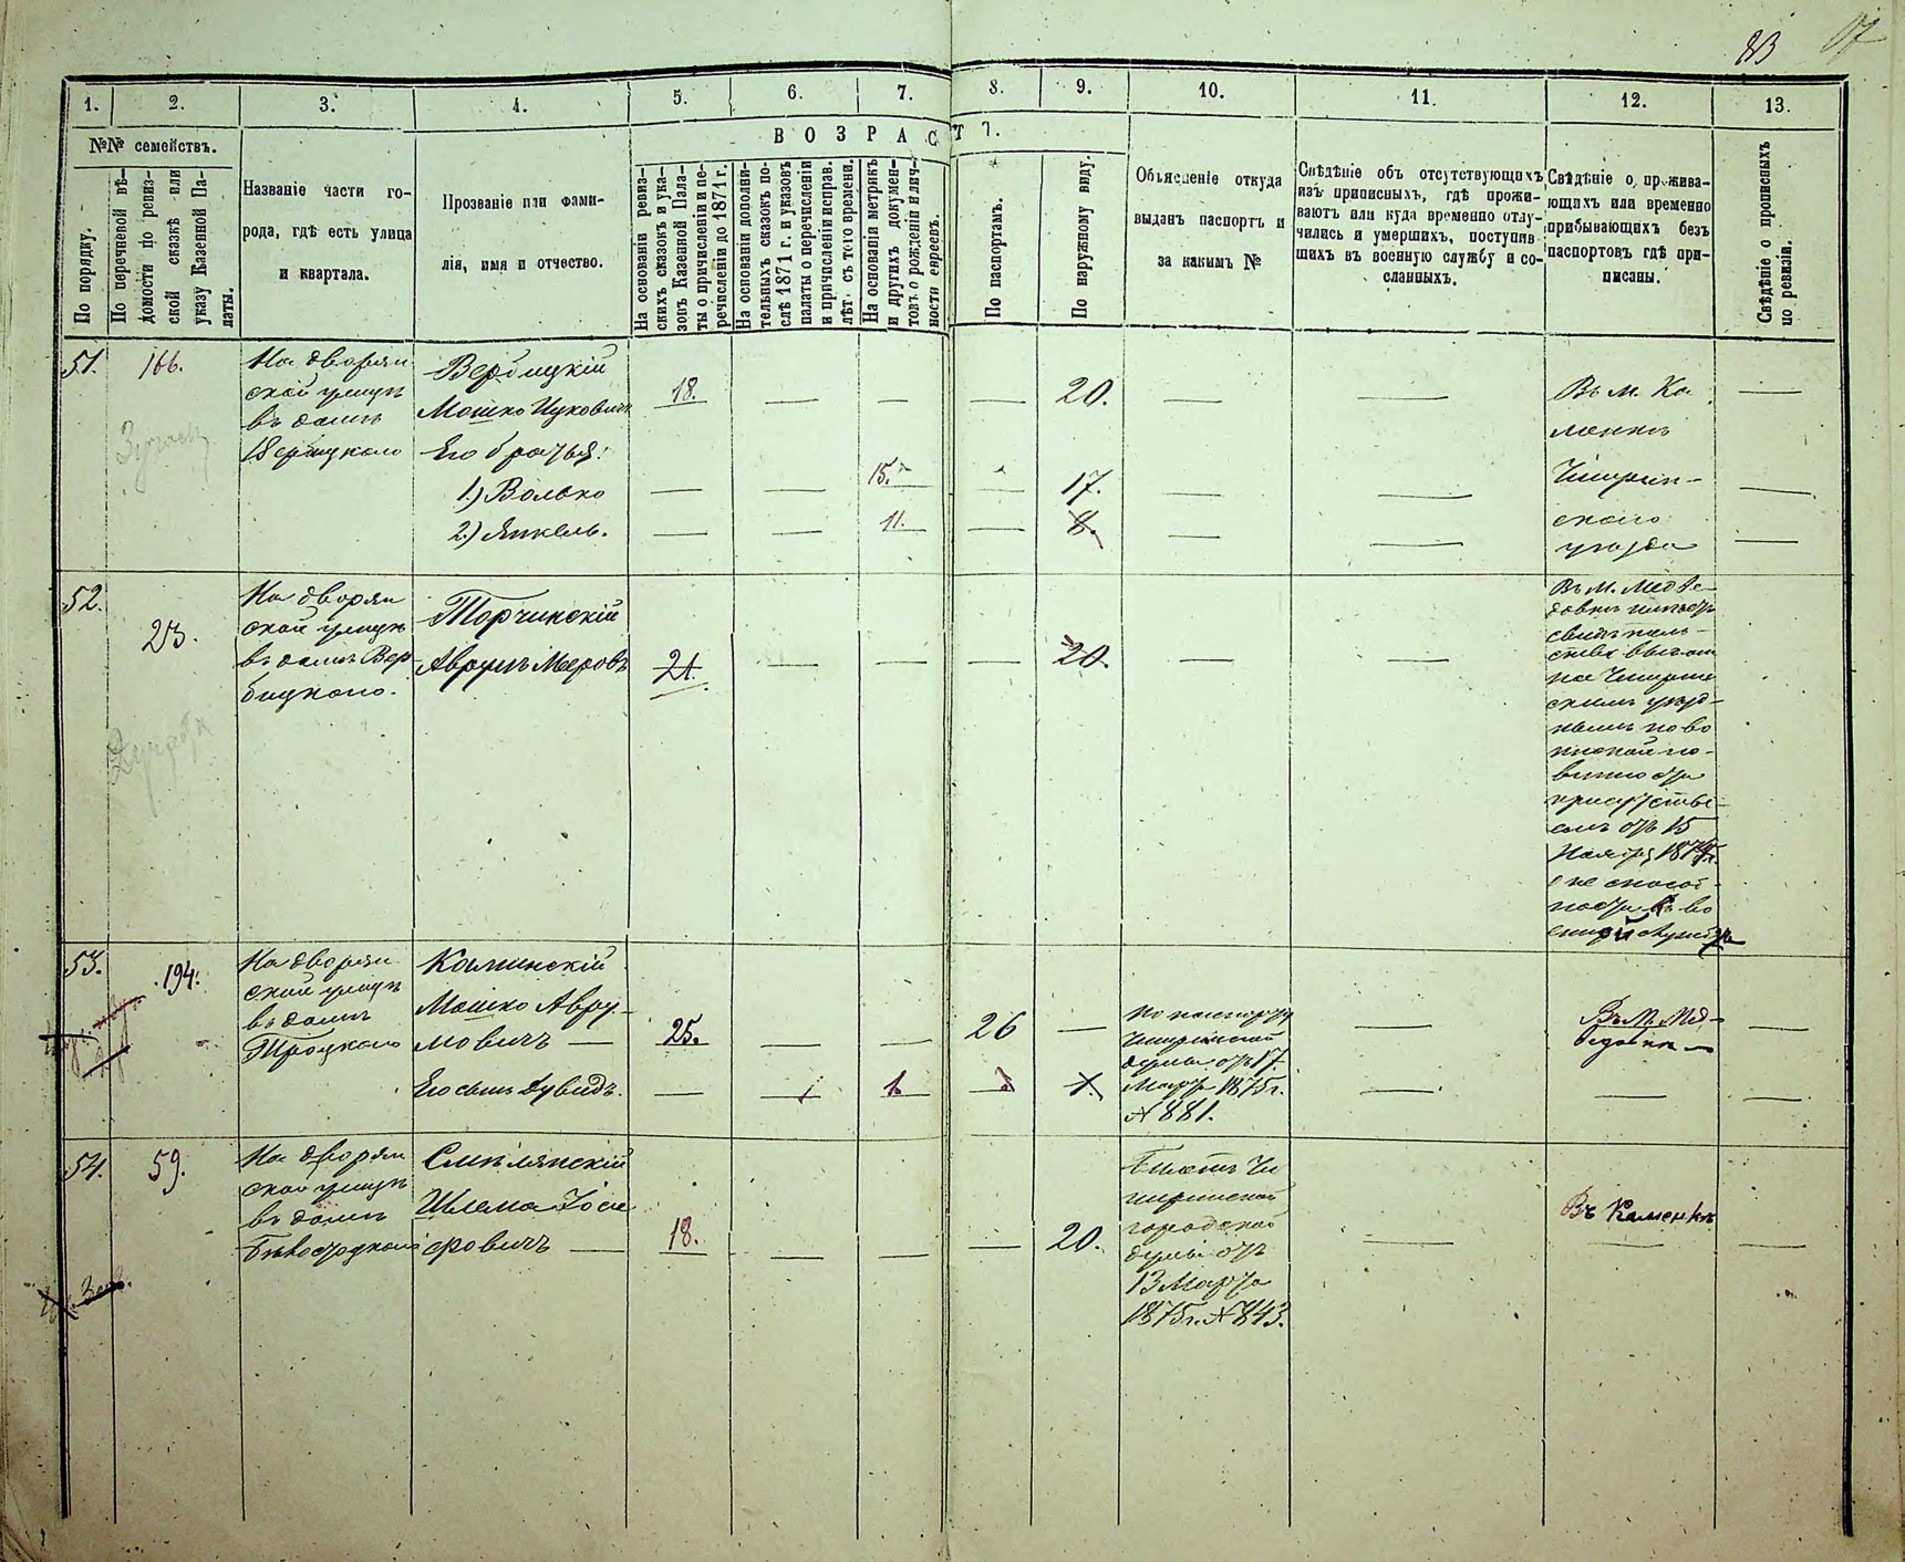 83
1. 2. 3. 4. 5. 6. 7. 8. 9. 10. 11. 12. 13.
№№ семействъ.
ВОЗРАСТ
По порядку.
По перечневой вѣ-
домости по ревиз-
ской сказкѣ или
указу Казенной Па-
латы.
Названіе части го-
рода, гдѣ есть улица
и квартала.
Прозваніе или фами-
лія, имя и отчество.
На основаніи ревиз-
скихъ сказокъ и ука-
зовъ Казенной Пала-
ты о причисленіи и пе-
речисленіи до 1871 г.
На основаніи дополни-
тельныхъ сказокъ по-
слѣ 1871 г. и указовъ
палаты о перечисленіи
и причисленіи исправ.
лѣт. съ того времени.
На основаніи метрикъ
и другихъ докумен-
товъ о рожденіи и лич-
ности евреевъ.
По паспортамъ.
По наружному виду.
Объясненіе откуда
выданъ паспортъ и
за какимъ №
Свѣдѣніе объ отсутствующихъ
изъ приписныхъ, гдѣ прожи-
ваютъ или куда временно отлу-
чились и умершихъ, поступив
шихъ въ военную службу и со-
сланныхъ.
Свѣдѣніе о прожива-
ющихъ или временно
прибывающихъ безъ
паспортовъ гдѣ при-
писаны.
Свѣдѣніе о прописныхъ
по ревизіи.
51. 166.
На дворян
ской улицѣ
въ домѣ
Вербицкій
Мошко Ицковичъ
18. — — — 20. — — —
Его братья:
1.) Волько — — 15. — 17. — — —
2.) Янкель. — — 11. — 8. — — —
Въ м. Ка
менкѣ
Чигрин-
скаго
уѣзда
52. 23.
На дворян
ской улицѣ
въ домѣ Вер
бицкого.
Торчинскій
Аврумъ Меровъ
21. — — — 20. — —
Въ М. Медве-
довкѣ имѣетъ
свидѣтель-
ство выдан
ное Чигрин
скимъ уѣзд-
нымъ по во
инской по-
винности
присутстві
емъ отъ 15
Ноября 1874 г.
о не способ-
ности къ во
53. 194.
На дворян
ской улицѣ
въ домѣ
Троцкаго
Каминскій
Мошко Авру-
мовичъ —
25. — — 26 — — —
Его сынъ Дувидъ.
— 1 1. 1. — — —
По паспорту
Чигринской
думы отъ 17.
Марта 1875 г.
№ 881.
Въ М. Мед-
ведовкѣ
54. 59.
На дворян
ской улицѣ
въ домѣ
Смѣлянскій
Шлема Іосе
фовичъ —
18. — — — 20. — — —
Билетъ Чи
гиринской
городской
думы отъ
13 Марта
1875 г. № 843.
Въ Каменкѣ